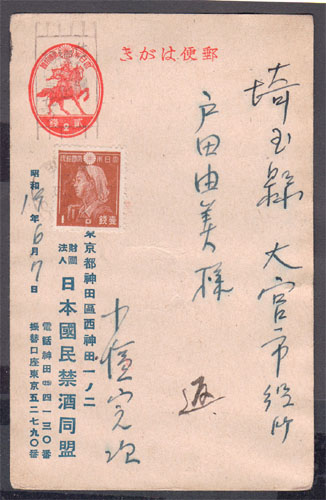 郵便はがき
埼玉縣大宮市役所
戸田由美様
大日本帝國郵便
貳錢
2
大日本帝國郵便
壹錢
1
昭和18年6月7日
東京都神田區西神田一ノ二
財團法人 日本國民禁酒同盟
電話神田四一三〇番
振替口座東京五二七九〇番